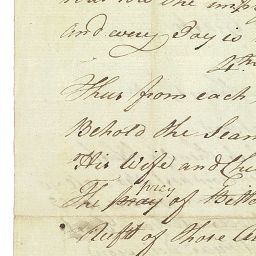 and every Day is
4th
Thus from each
Behold the Seam
His Wife and Chi
prey
The pray of Bitte
Reft of those